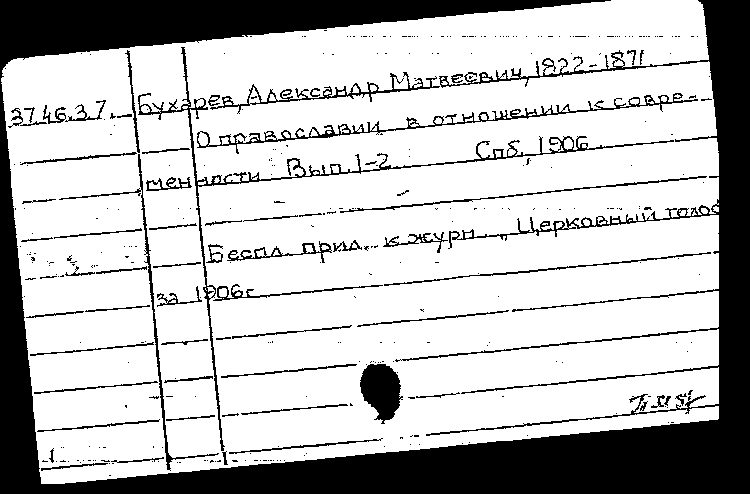 3746.37. Бухарев, Александр Матвеевич, 1822-1871.
О православии в отношении к совре-
менности Вып. 1-2 Спб., 1906
Беспл. прил. к журн. „Церковный голос
за 1906г
1